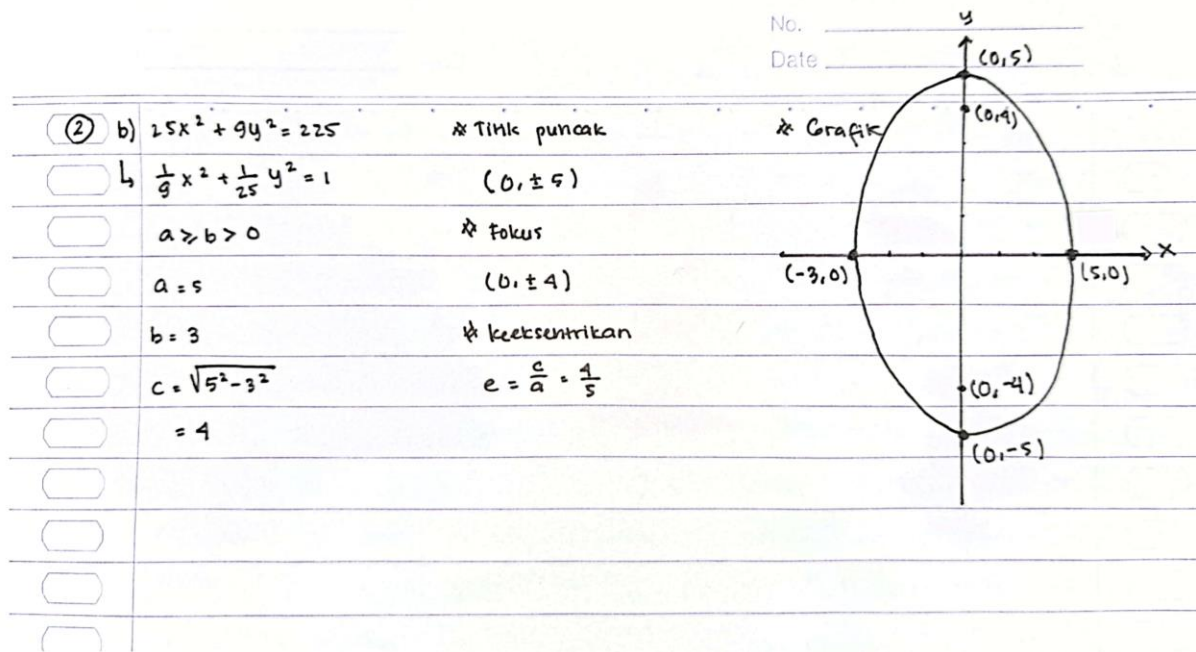 No.
Date
② b) 25x² + 9y² = 225
↳ 1/9 x² + 1/25 y² = 1
a ⩾ b > 0
a = 5
b = 3
c = √(5² - 3²)
= 4
※ Titik puncak
(0, ± 5)
※ Fokus
(0, ± 4)
※ keeksentrikan
e = c/a = 4/5
※ Grafik
y
(0,5)
(0,4)
x
(-3,0)
(5,0)
(0,-4)
(0,-5)